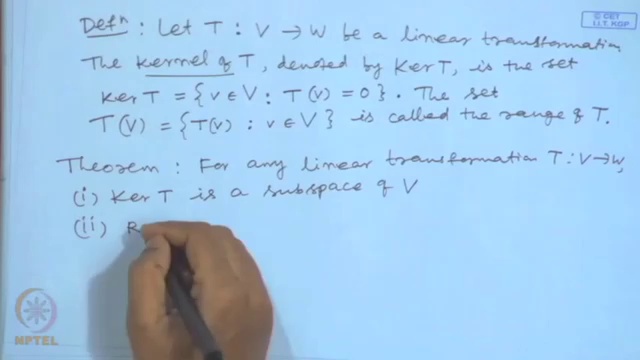 © CET
I.I.T. KGP
Defⁿ : Let T : V → W be a linear transformation
The Kernel of T, denoted by Ker T, is the set
Ker T = {v ∈ V : T(v) = 0}. The set
T(V) = {T(v) : v ∈ V} is called the range of T.
Theorem : For any linear transformation T : V → W,
(i) Ker T is a subspace of V
(ii) R
NPTEL